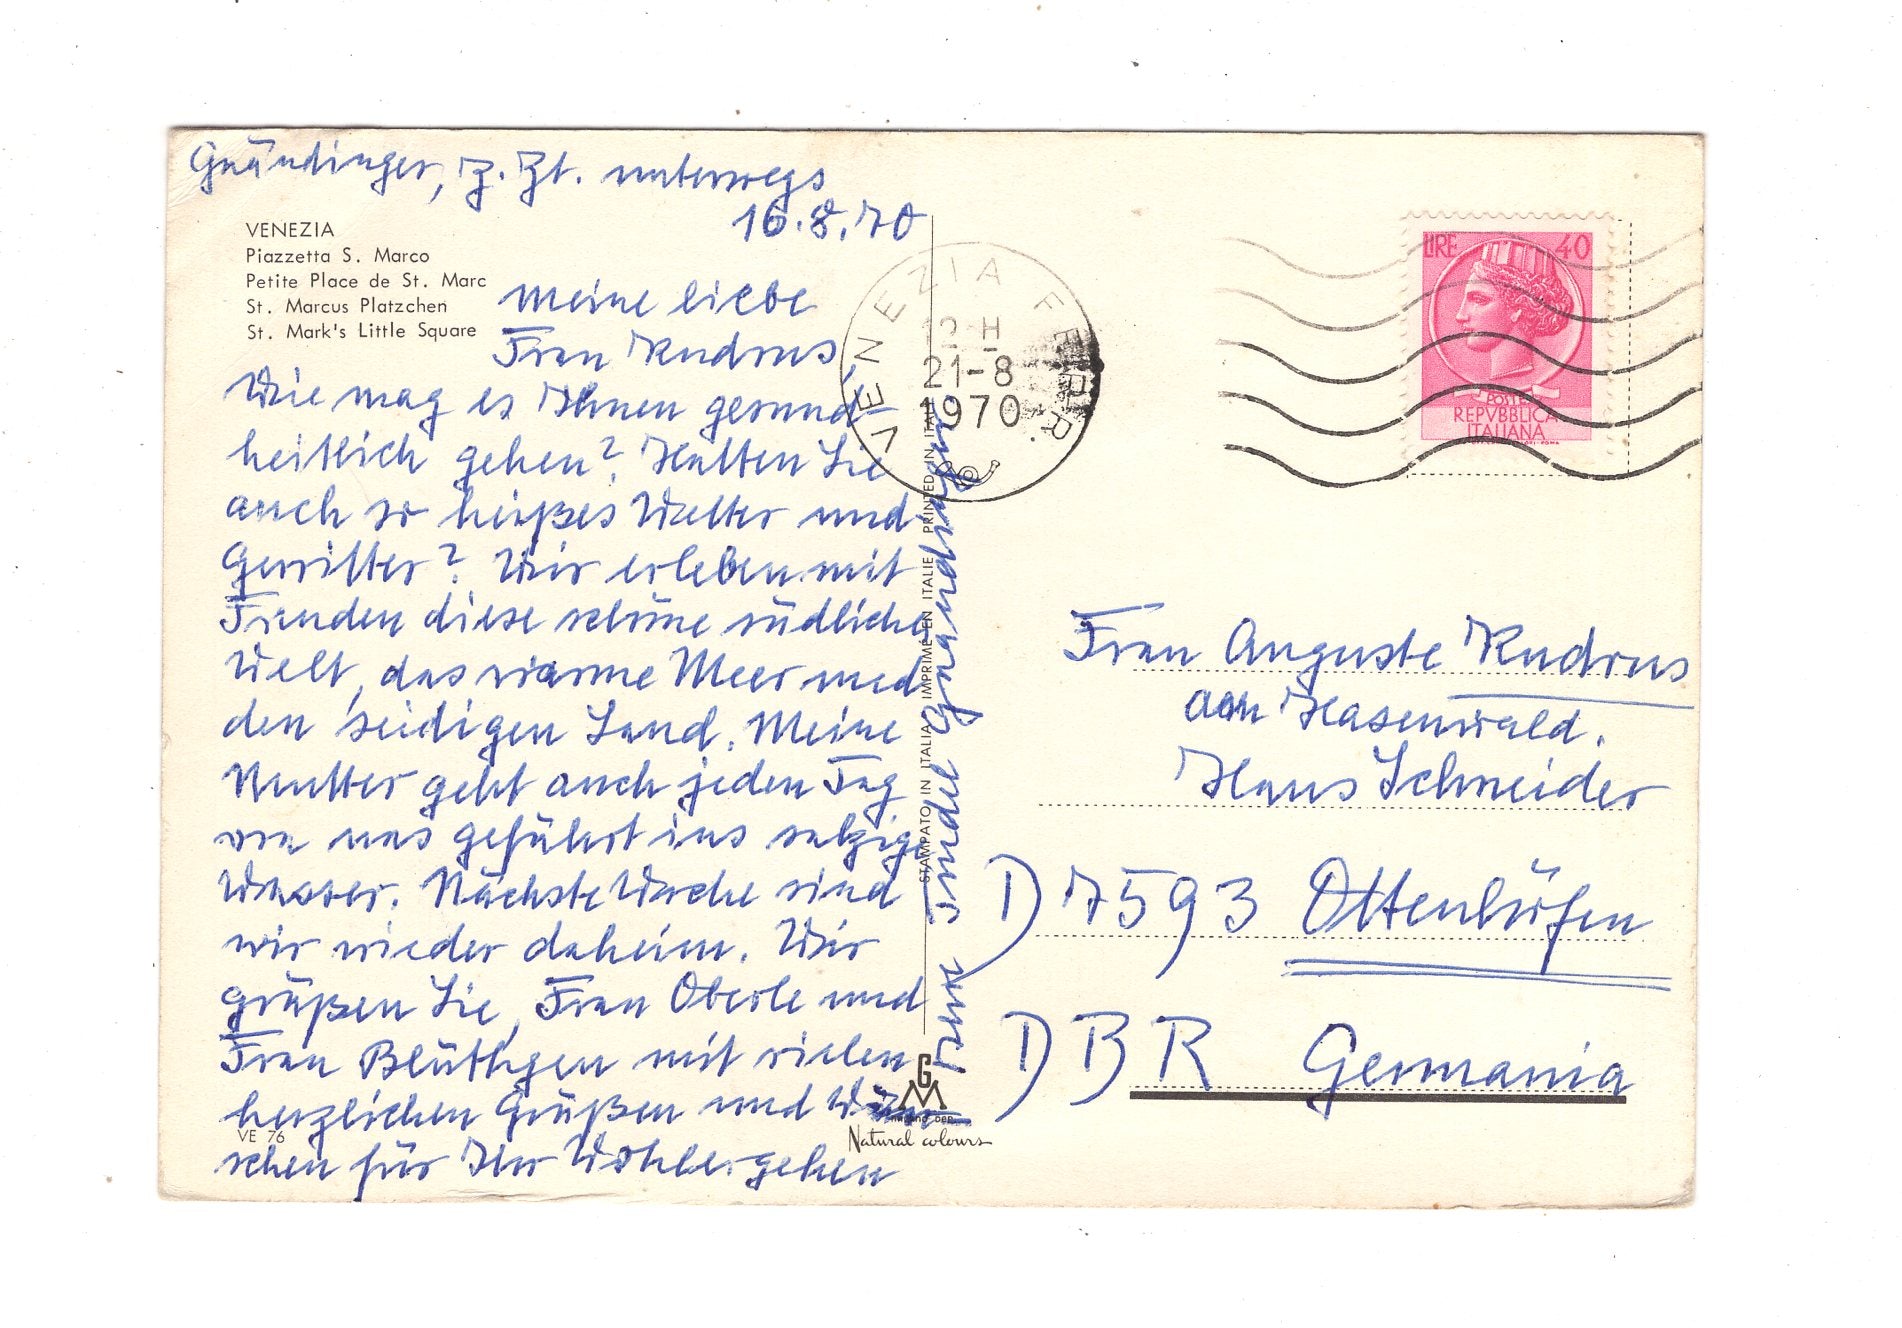 Gnändinger, z. Zt. unterwegs
16.8.70
VENEZIA
Piazzetta S. Marco
Petite Place de St. Marc
St. Marcus Platzchen
St. Mark's Little Square
Meine liebe
Frau Kudrus,
Wie mag es Ihnen gesund-
heitlich gehen? Hatten Sie
auch so heißes Wetter und
Gewitter? Wir erleben mit
Freuden diese schöne südliche
Welt, das warme Meer und
den seidigen Sand. Meine
Mutter geht auch jeden Tag
von uns geführt ins salzige
Wasser. Nächste Woche sind
wir wieder daheim. Wir
grüßen Sie, Frau Oberle und
Frau Blüthgen mit vielen
herzlichen Grüßen und Wün-
schen für Ihr Wohlergehen
Gnändinger
STAMPATO IN ITALIA IMPRIMÉ EN ITALIE PRINTED IN ITALY
VE 76
GM
Natural colours
VENEZIA FERR.
12-H
21-8
1970
LIRE 40
POSTE
REPVBBLICA
ITALIANA
Frau Auguste Kudrus
am Hasenwald.
Haus Schneider
D 7593 Ottenhöfen
DBR Germania